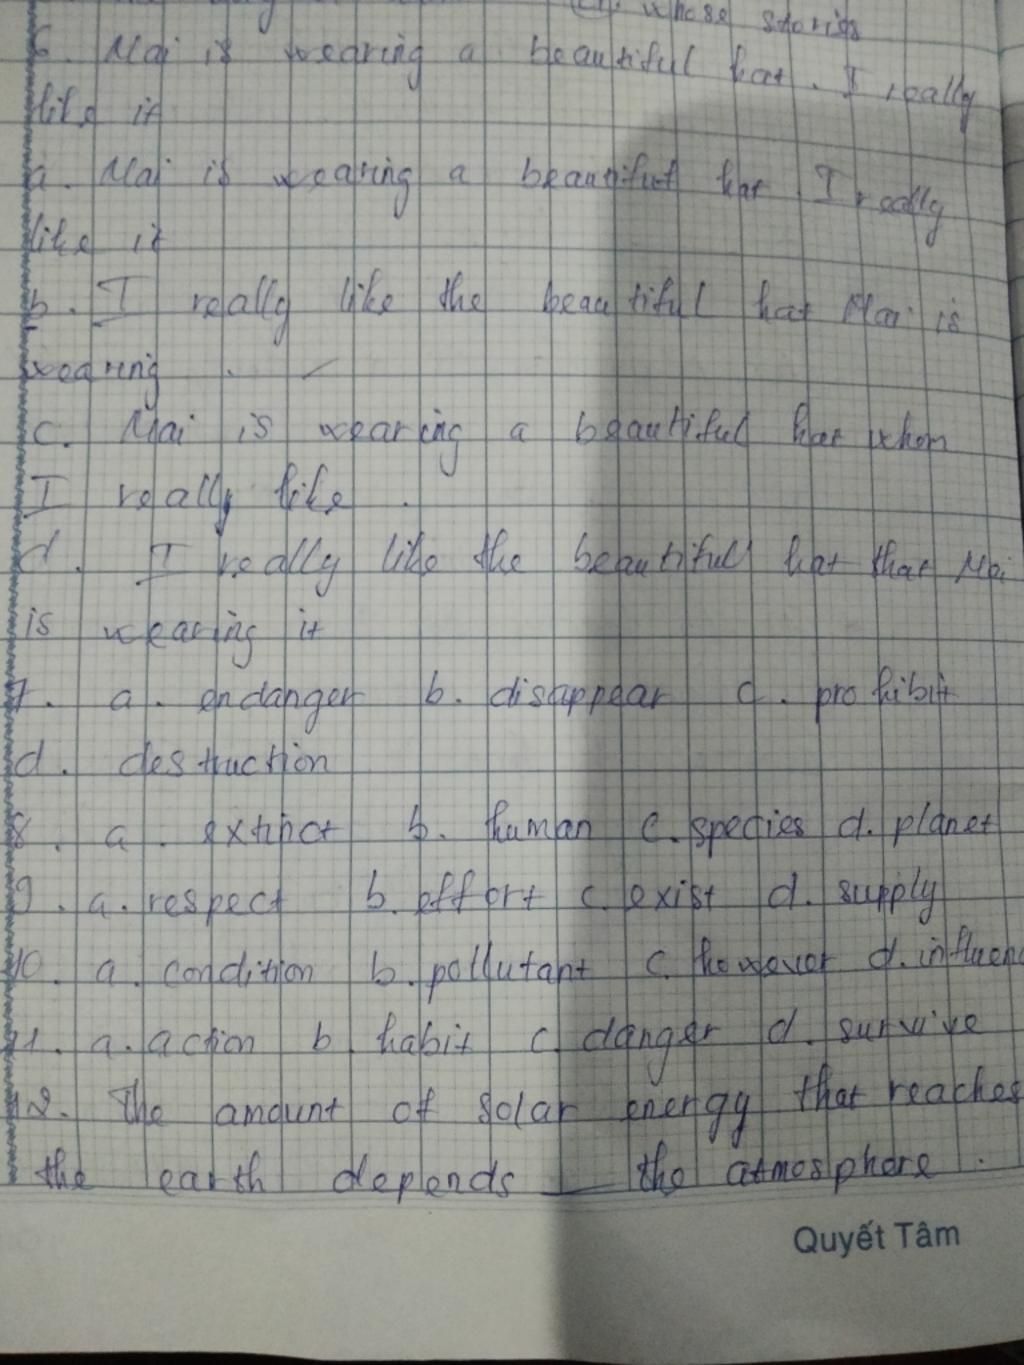 whose stories
6. Mai is wearing a beautiful hat. I really
like it
a. Mai is wearing a beautiful hat I really
like it
b. I really like the beautiful hat Mai is
wearing.
c. Mai is wearing a beautiful hat whom
I really like.
d. I really like the beautiful hat that Mai
is wearing it
7. a. endanger b. disappear c. prohibit
d. destruction
8. a. extinct b. human c. species d. planet
9. a. respect b. effort c. exist d. supply
10. a. condition b. pollutant c. however d. influenc
11. a. action b. habit c. danger d. survive
12. The amount of solar energy that reaches
the earth depends ___ the atmosphere.
Quyết Tâm